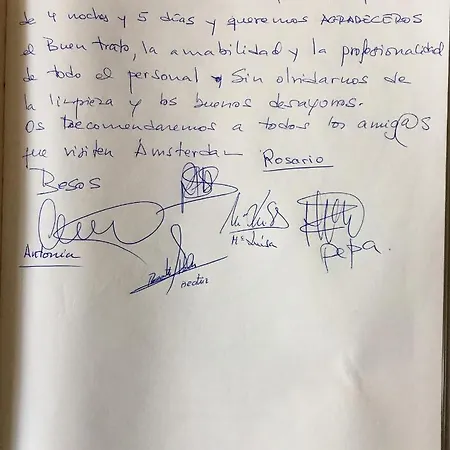 de 4 noches y 5 días y queremos AGRADECEROS
el Buen trato, la amabilidad y la profesionalidad
de todo el personal y Sin olvidarnos de
la limpieza y los buenos desayunos.
Os Recomendaremos a todos los amig@s
que visiten Amsterdam
Rosario
Besos
Mª Luisa
Antonia
Pepa.